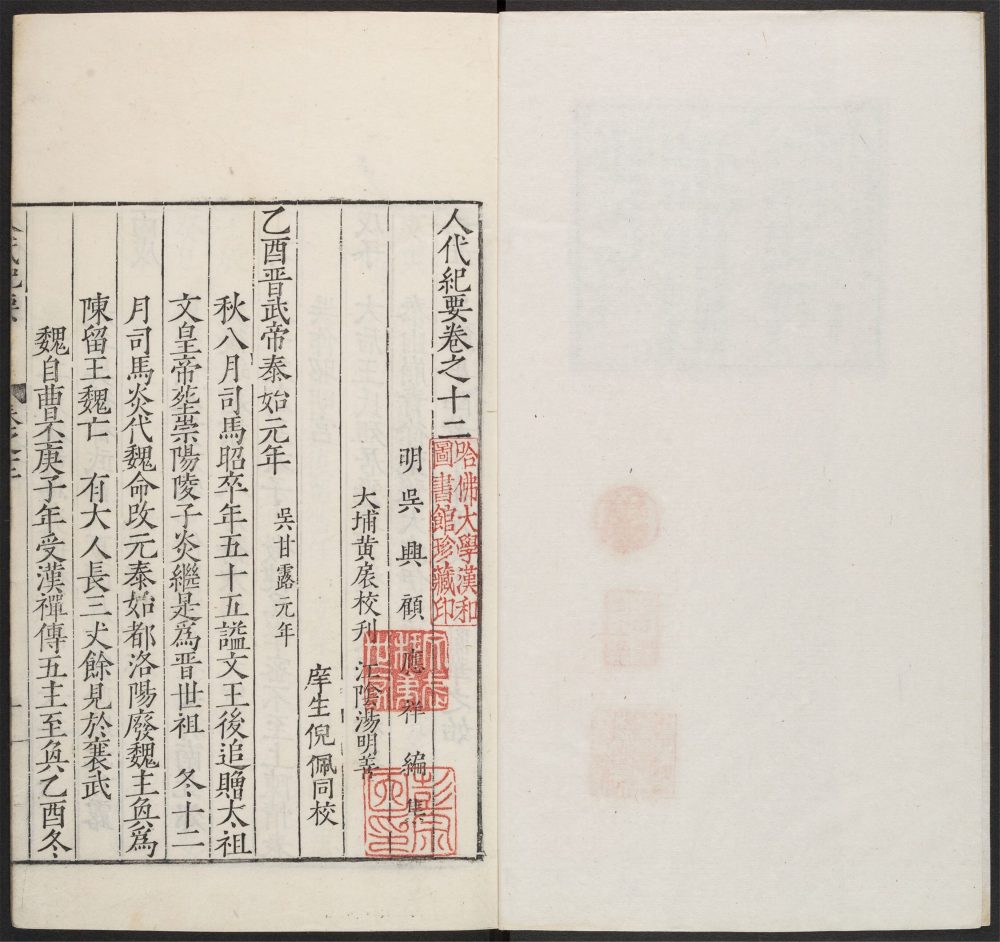 人代紀要卷之十二
哈佛大學漢和
圖書館珍藏印
明吳興顧應祥編集
大埔黃扆校刋 江陰湯明善
庠生倪佩同校
乙酉晋武帝泰始元年 吳甘露元年
秋八月司馬昭卒年五十五謚文王後追贈太祖
文皇帝塟崇陽陵子炎繼是爲晋世祖 冬十二
月司馬炎代魏命改元泰始都洛陽廢魏主奐爲
陳留王魏亡 有大人長三丈餘見於襄武
魏自曹丕庚子年受漢禪傳五主至奐乙酉冬